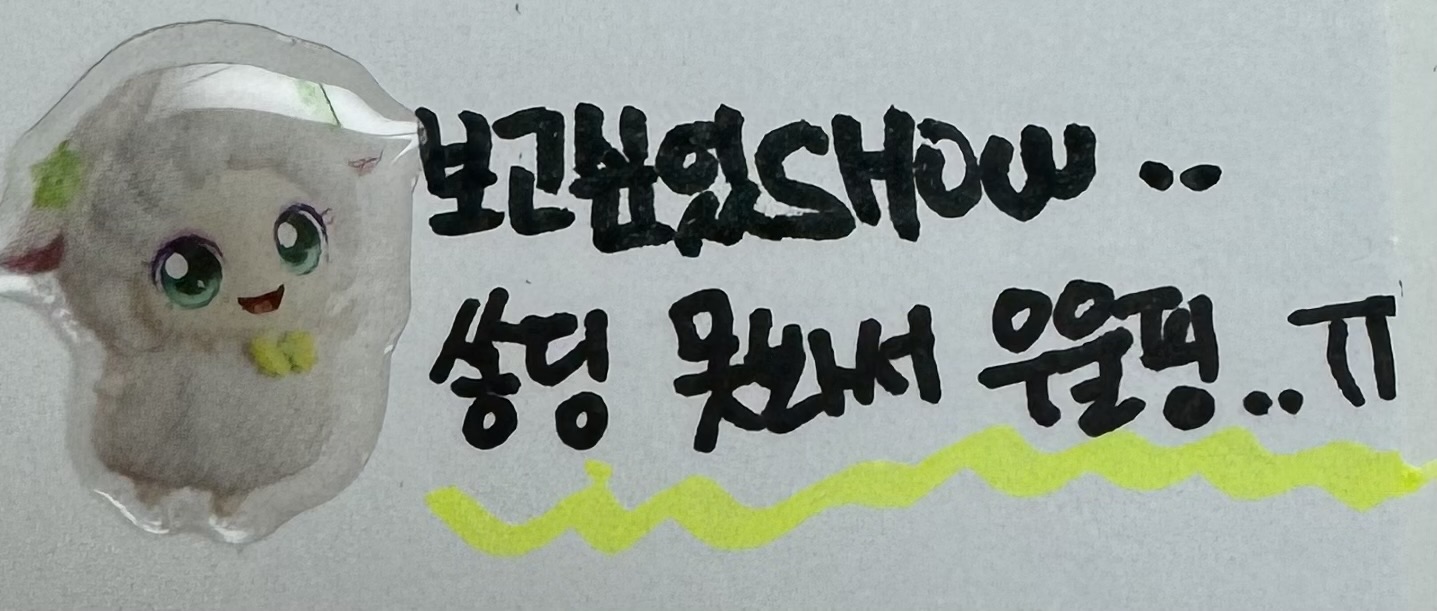 보고싶었SHOW..
쏭딩 못봐서 우울핑..ㅠ